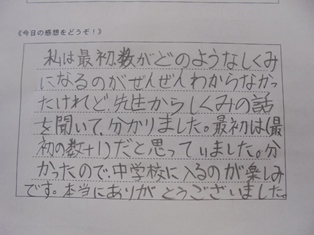 《今日の感想をどうぞ！》
私は最初数がどのようなしくみ
になるのがぜんぜんわからなかっ
たけれど、先生からしくみの話
を聞いて、分かりました。最初は(最
初の数+1)だと思っていました。分
かったので、中学校に入るのが楽しみ
です。本当にありがとうございました。